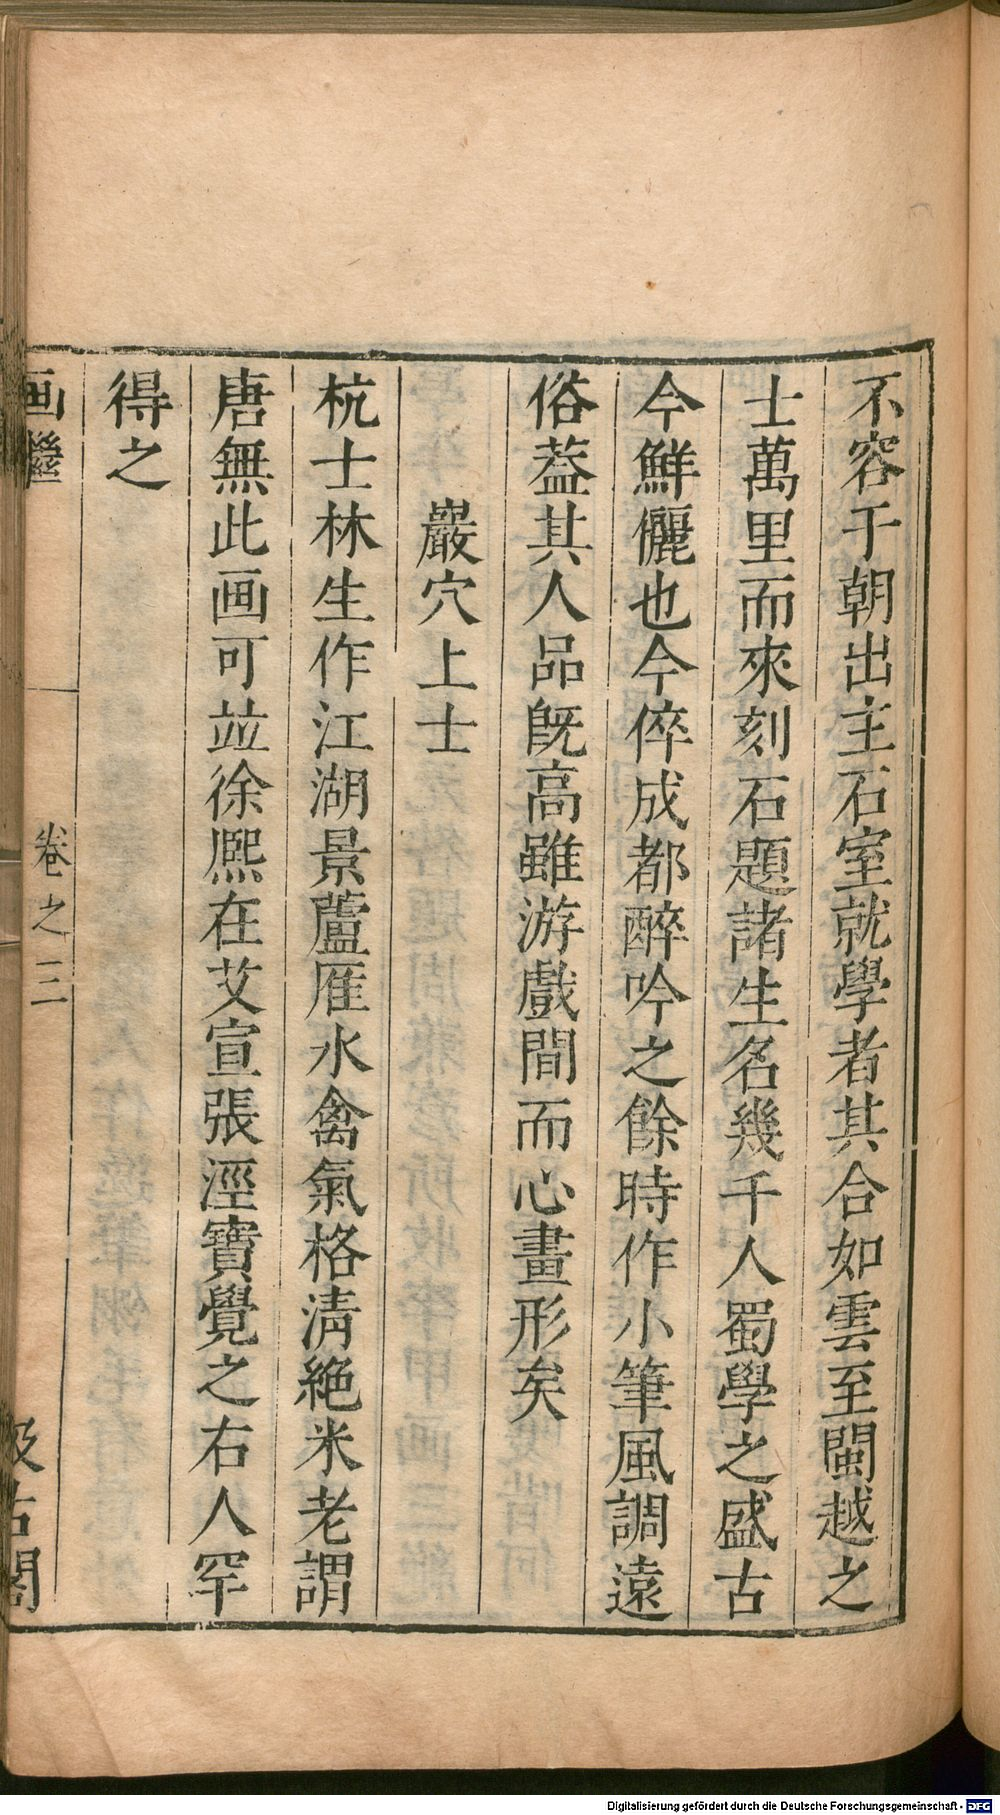 不容于朝出主石室就學者其合如雲至閩越之
士萬里而來刻石題諸生名幾千人蜀學之盛古
今鮮儷也今倅成都醉吟之餘時作小筆風調遠
俗葢其人品旣高雖游戲間而心畫形矣
巖穴上士
杭士林生作江湖景蘆雁水禽氣格淸絶米老謂
唐無此画可竝徐熙在艾宣張涇寶覺之右人罕
得之
画繼 卷之三 汲古閣
Digitalisierung gefördert durch die Deutsche Forschungsgemeinschaft - DFG